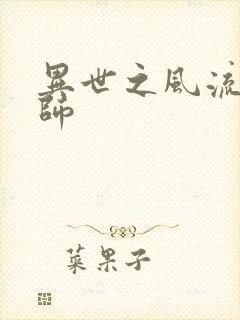 異世之風流
師
菜果子